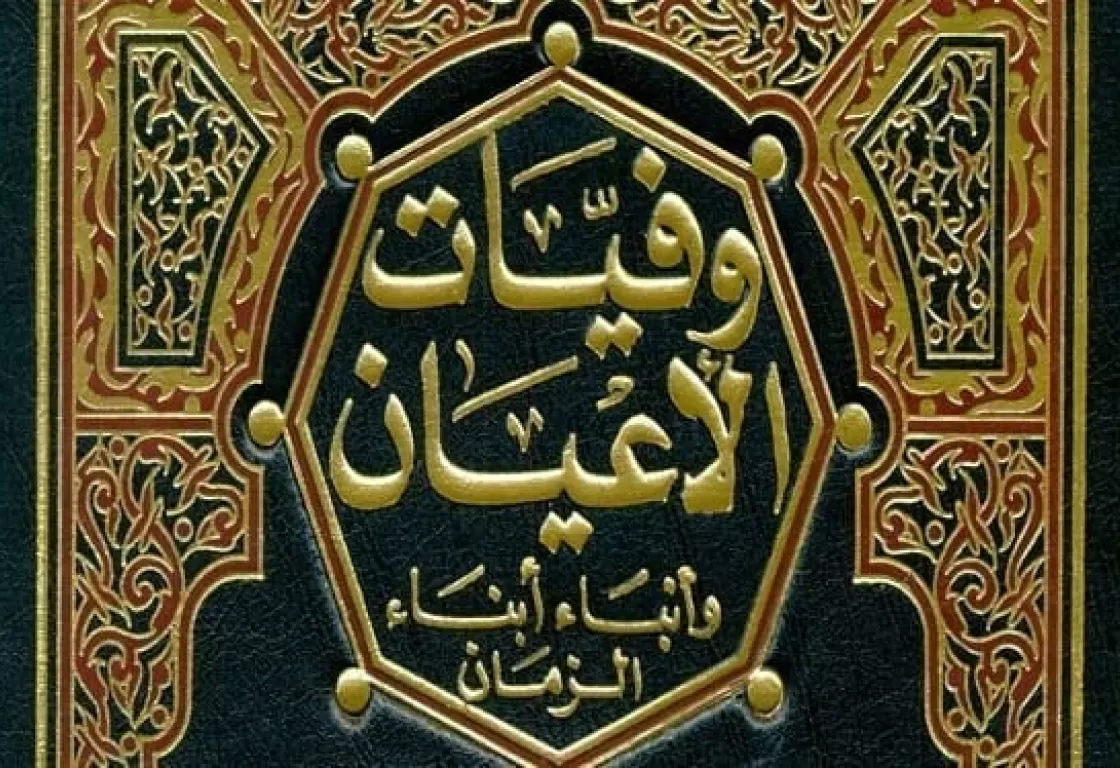 وفيّات
الأعيان
وأنباء أبناء
الزمان